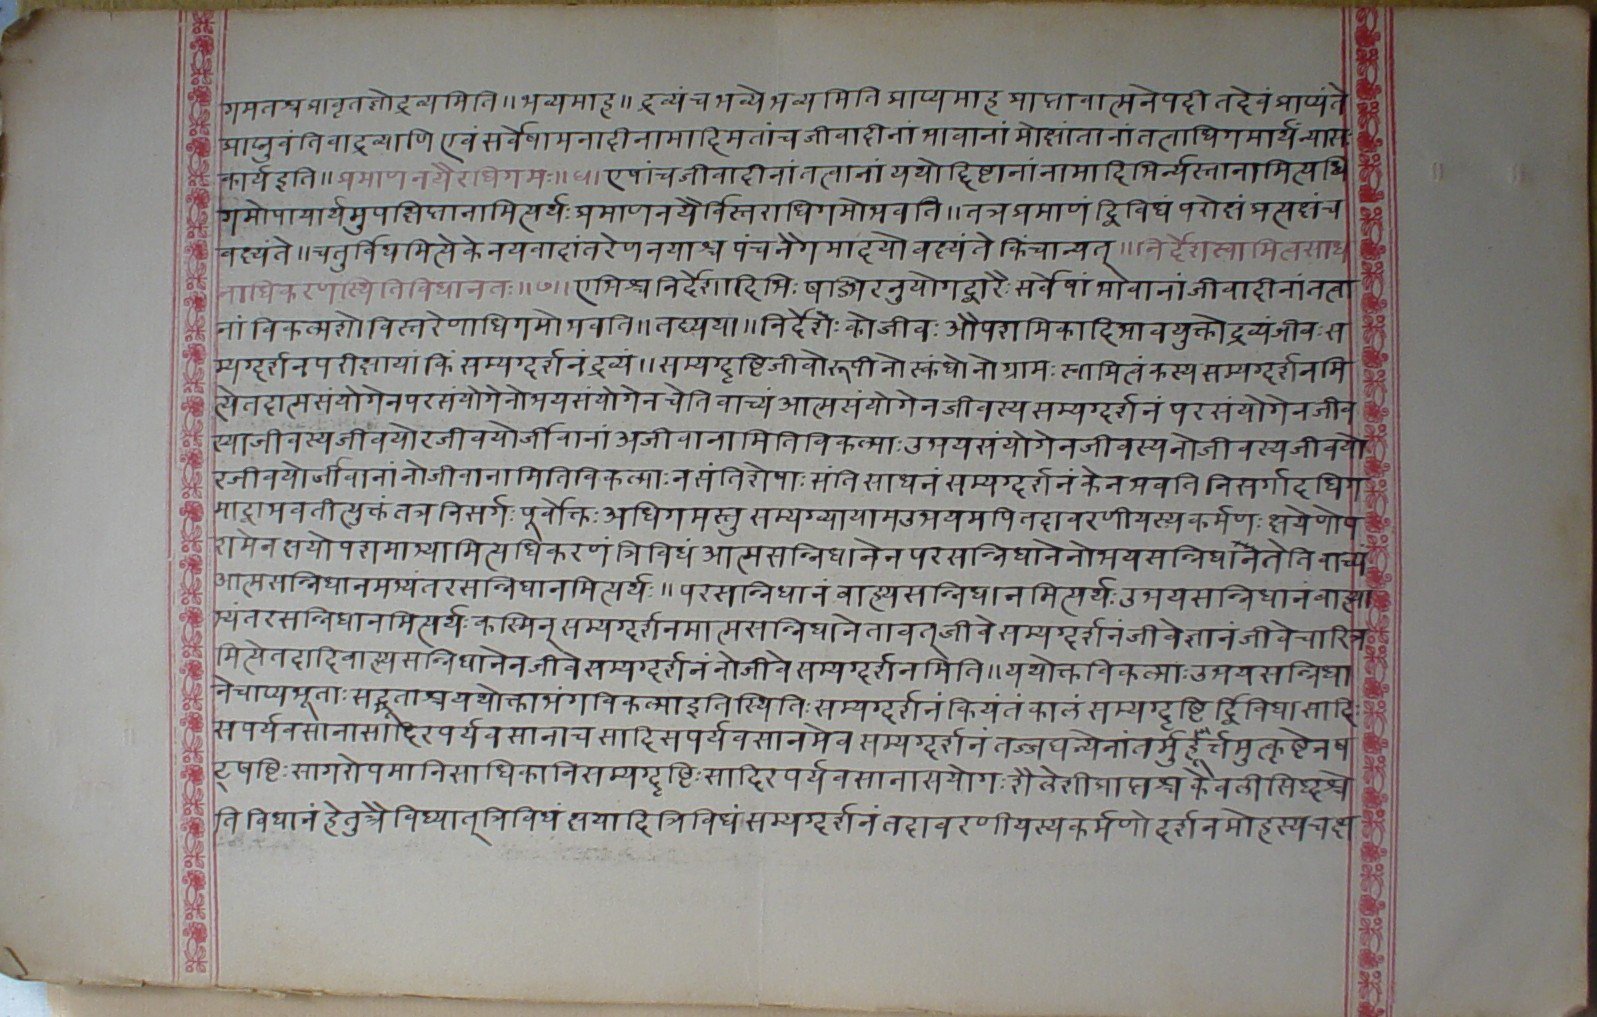 गमतश्च प्राभृतज्ञो द्रव्यमिति॥ भव्यमाह॥ द्रव्यं च भव्ये भव्यमिति प्राप्यमाह प्राप्तावात्मनेपदी तदेवं प्राप्यंते
प्राप्नुवंति वा द्रव्याणि एवं सर्वेषामनादीनामादिमतां च जीवादीनां भावानां मोक्षांतानां तत्वाधिगमार्थं न्यासः
कार्य इति॥ प्रमाणनयैरधिगमः॥६। एषां च जीवादीनां तत्वानां यथोद्दिष्टानां नामादिभिर्न्यस्तानामित्यधि
गमोपायार्थमुपक्षिप्तानामित्यर्थः प्रमाणनयैर्विस्तराधिगमो भवति॥ तत्र प्रमाणं द्विविधं परोक्षं प्रत्यक्षं च
वक्ष्यंते॥ चतुर्विधमित्येके नयवादांतरेण नयाश्च पंच नैगमादयो वक्ष्यंते किंचान्यत्॥ निर्देशस्वामित्वसाध
नाधिकरणस्थितिविधानतः॥७॥ एभिश्च निर्देशादिभिः षड्भिरनुयोगद्वारैः सर्वेषां भावानां जीवादीनां तत्वा
नां विकल्पशो विस्तरेणाधिगमो भवति॥ तद्यथा॥ निर्देशः को जीवः औपशमिकादिभावयुक्तो द्रव्यं जीवः स
म्यग्दर्शनपरीक्षायां किं सम्यग्दर्शनं द्रव्यं॥ सम्यग्दृष्टिजीवोरूपी नो स्कंधो नो ग्रामः स्वामित्वं कस्य सम्यग्दर्शनमि
त्येतदात्मसंयोगेन परसंयोगेनोभयसंयोगेन चेति वाच्यं आत्मसंयोगेन जीवस्य सम्यग्दर्शनं परसंयोगेन जीव
स्याजीवस्य जीवयोरजीवयोर्जीवानां अजीवानामिति विकल्पाः उभयसंयोगेन जीवस्य नोजीवस्य जीवयो
रजीवयोर्जीवानां नोजीवानामिति विकल्पाः न संति शेषाः संति साधनं सम्यग्दर्शनं केन भवति निसर्गादधिग
माद्वा भवतीत्युक्तं तत्र निसर्गः पूर्वोक्तः अधिगमस्तु सम्यग्व्यायामउभयमपि तदावरणीयस्य कर्मणः क्षयेणोप
शमेन क्षयोपशमाभ्यामित्यधिकरणं त्रिविधं आत्मसन्निधानेन परसन्निधानेनोभयसन्निधानेतेति वाच्यं
आत्मसन्निधानमभ्यंतरसन्निधानमित्यर्थः॥ परसन्निधानं वाह्यसन्निधानमित्यर्थः उभयसन्निधानं वाह्या
भ्यंतरसन्निधानमित्यर्थः कस्मिन् सम्यग्दर्शनमात्मसन्निधाने तावत् जीवे सम्यग्दर्शनं जीवे ज्ञानं जीवे चारित्र
मित्येतदादि वाह्यसन्निधानेन जीवे सम्यग्दर्शनं नोजीवे सम्यग्दर्शनमिति॥ यथोक्तविकल्पाः उभयसन्निधा
ने चाप्यभूताः सद्भूताश्च यथोक्ता भंगविकल्पा इति स्थितिः सम्यग्दर्शनं कियंतं कालं सम्यग्दृष्टिर्द्विविधा सादिः
सपर्यवसानासादिरपर्यवसाना च सादिसपर्यवसानमेव सम्यग्दर्शनं तज्जघन्येनांतर्मुहूर्त्तमुत्कृष्टेन ष
ट्षष्टिः सागरोपमानि साधिकानि सम्यग्दृष्टिः सादिरपर्यवसाना सयोगः शैलेशीप्राप्तश्च केवली सिद्धश्चे
ति विधानं हेतुत्रैविध्यात् त्रिविधं क्षयादि त्रिविधं सम्यग्दर्शनं तदावरणीयस्य कर्मणो दर्शनमोहस्य च क्ष